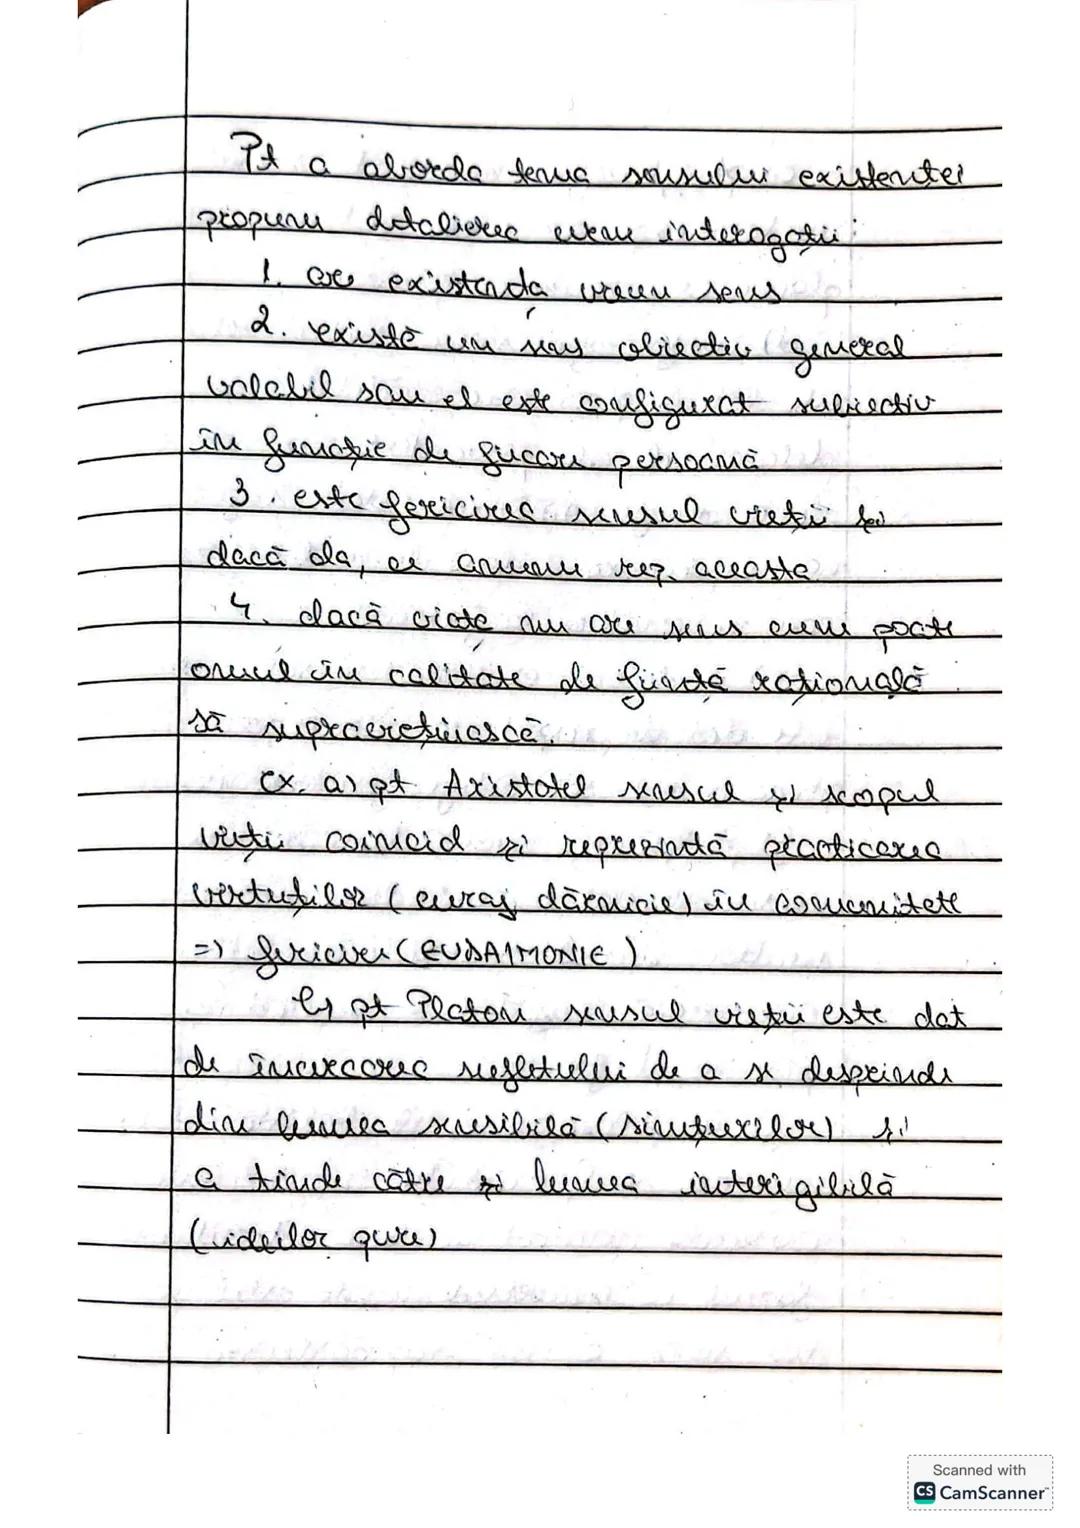 Pt a aborda tema sensului existentei
propunu detalierea urm interogații:
1. are existența vreun sens
2. există un sens obiectiv general
valabil sau el este configurat subiectiv
în funcție de fiecare persoană
3. este fericirea sensul vieții și
dacă da, ce anume rep. aceasta
4. dacă viața nu are sens cum poate
omul în calitate de ființă rațională
să supraviețuiască.
ex. a) pt Aristotel sensul și scopul
vieții coincid și reprezintă practicarea
vertuților (curaj, dărnicie) în comunitate
=) fericire (EUDAIMONIE)
b) pt Platon sensul vieții este dat
de încercarea sufletului de a se desprinde
din lumea sensibilă (simțurilor) și
a tinde către și lumea interigibilă
(ideilor pure)
Scanned with
CS CamScanner